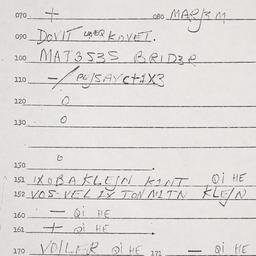 070 + 080 MARJEM
090 DOVIT KOVEL.
100 MAT3535 BRIDER
110 -/
120 0
130 0
0
150
151 IXOBA KLEIN KINT QI HE
152 VOS-VEL IX TON MITN KLEIN
160 - QI HE
161 + QI HE
170 VOILER QI HE 171 - QI HE